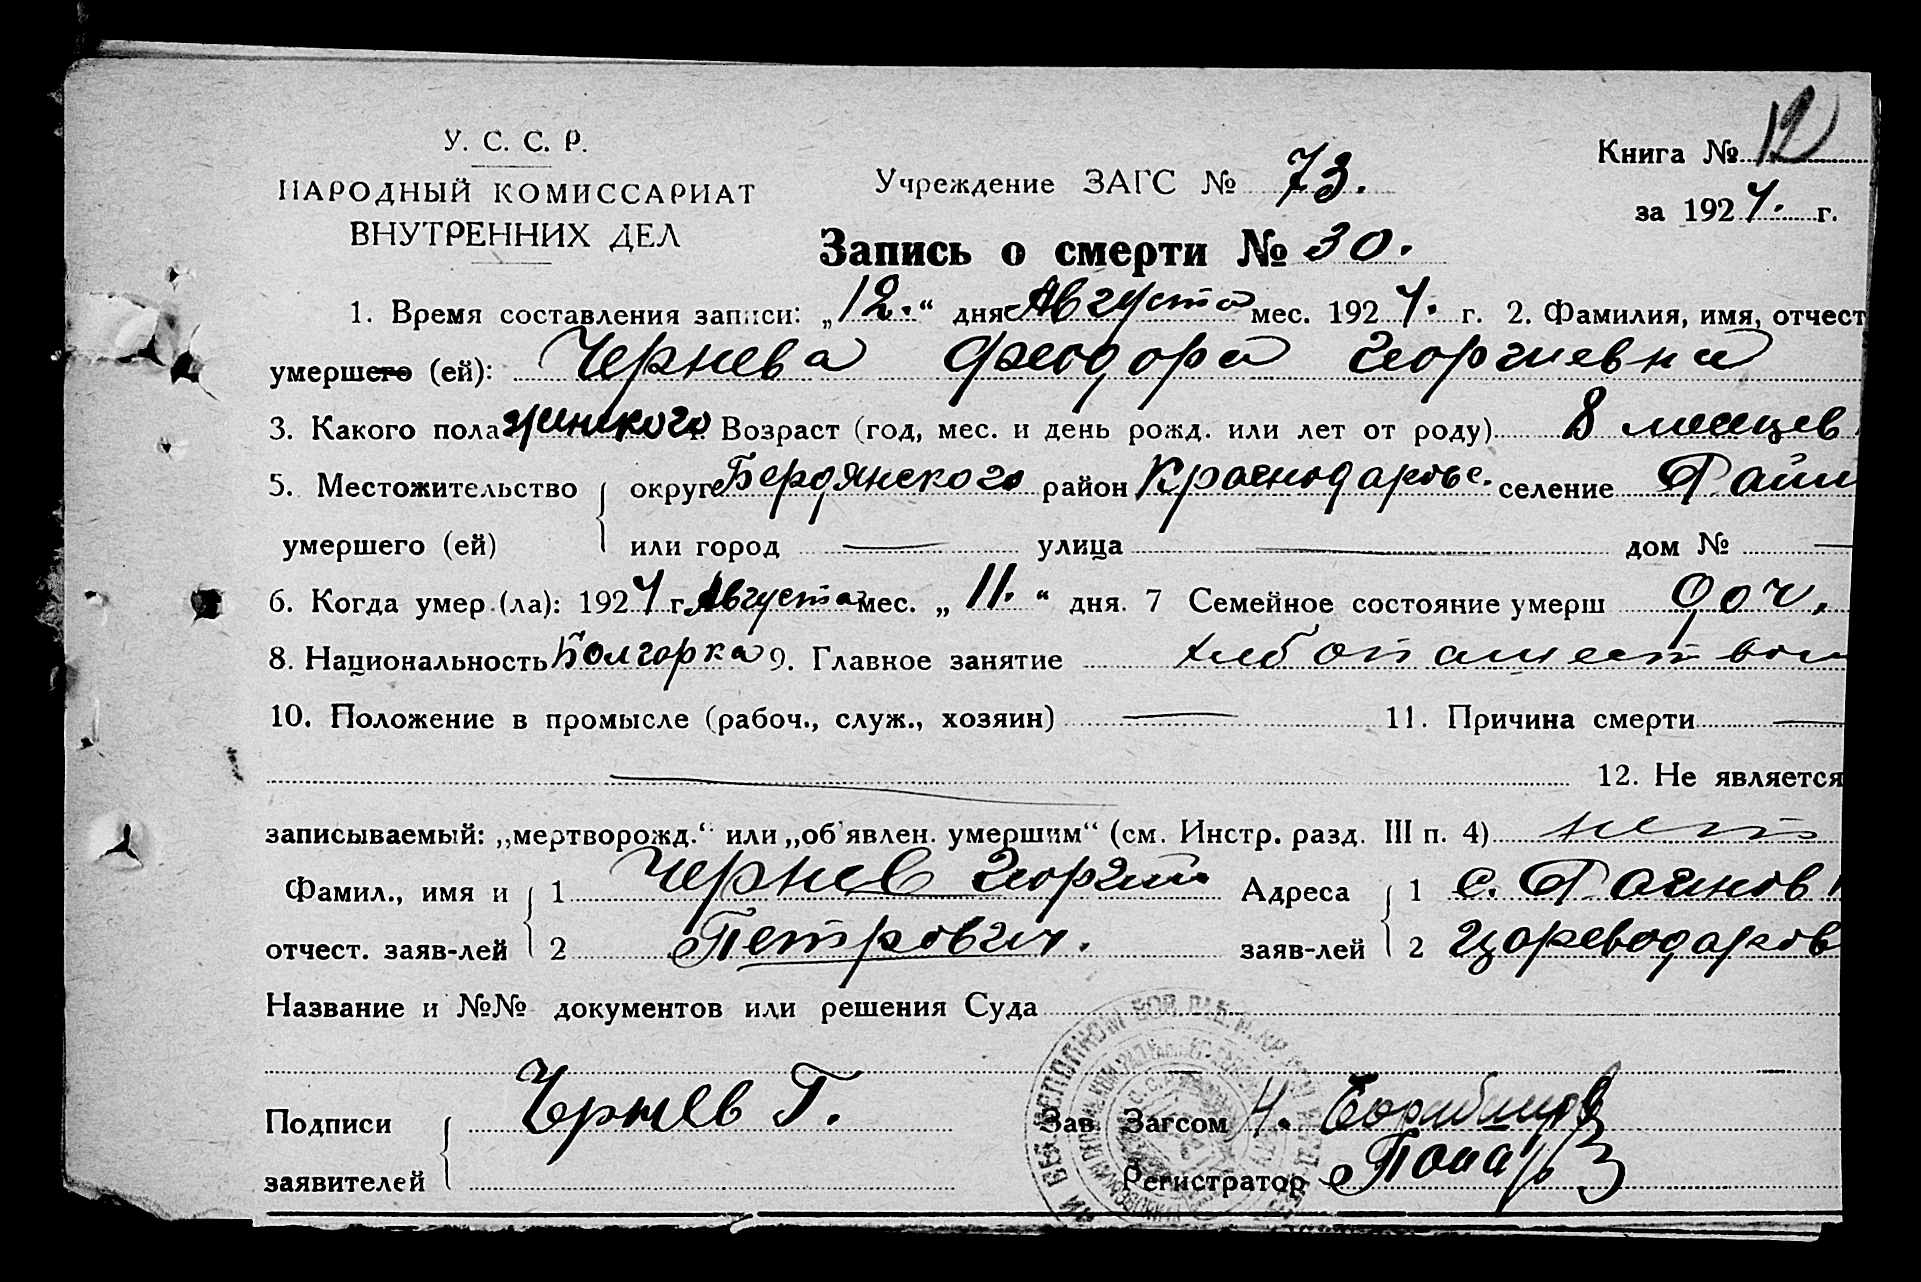 У. С. С. Р.
НАРОДНЫЙ КОМИССАРИАТ
ВНУТРЕННИХ ДЕЛ
Учреждение ЗАГС № 73.
Книга № 12
за 1924. г.
Запись о смерти № 30.
1. Время составления записи: „12.“ дня Августа мес. 1924. г. 2. Фамилия, имя, отчест
умершего (ей): Чернева Феодора Георгиевна
3. Какого пола женского. Возраст (год, мес. и день рожд. или лет от роду) 8 месяцев
5. Местожительство округ Бердянского район селение
умершего (ей) или город — улица — дом № —
6. Когда умер (ла): 1924 г. Августа мес. „11.“ дня. 7 Семейное состояние умерш доч.
8. Национальность Болгарка 9. Главное занятие
10. Положение в промысле (рабоч., служ., хозяин) — 11. Причина смерти —
— 12. Не является
записываемый: „мертворожд.“ или „об'явлен. умершим“ (см. Инстр. разд. III п. 4) нет
Фамил., имя и 1 Чернев Георгий Адреса 1 с.
отчест. заяв-лей 2 Петрович. заяв-лей 2 Цареводаров
Название и №№ документов или решения Суда
Подписи Чернев Г. Зав Загсом
заявителей Регистратор